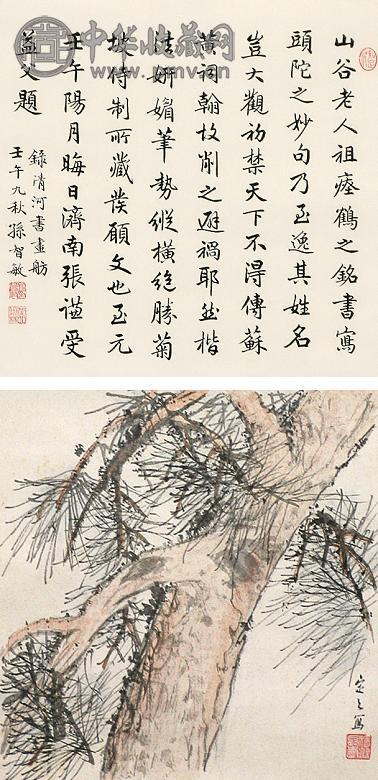 山谷老人祖瘞鶴之銘書寫
頭陀之妙句乃至逸其姓名
豈大觀初禁天下不得傳蘇
黃詞翰故削之避禍耶然楷
法妍媚筆勢縱橫絕勝菊
坡待制所藏發願文也至元
壬午陽月晦日濟南張謙受
益父題
錄清河書畫舫
壬午九秋孫智敏
中华收藏网
定之寫